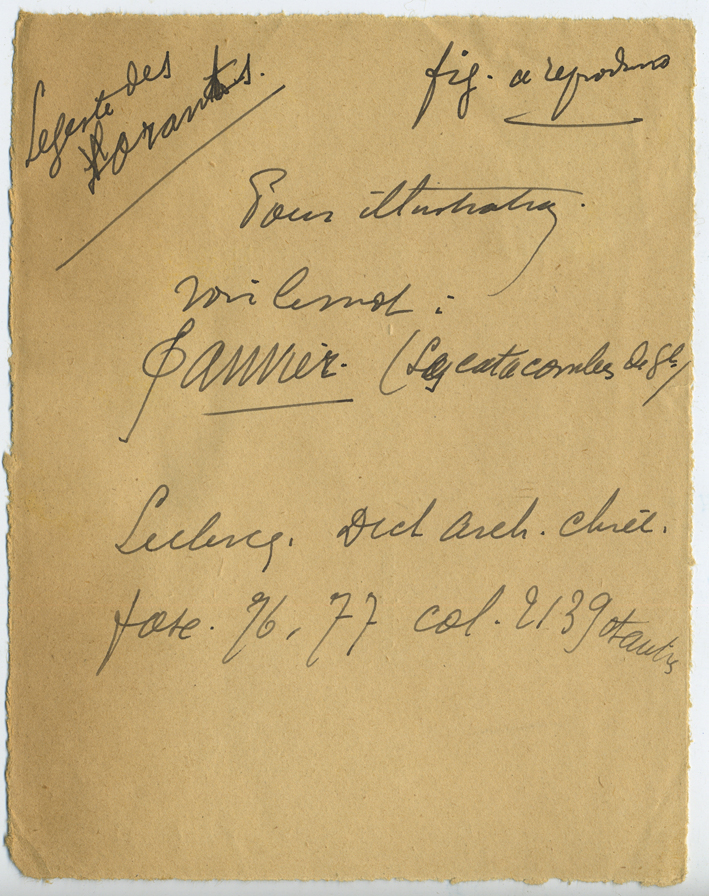 Le geste des
orants.
fig. a reproduire
Pour illustration.
voir
(Les catacombes de
Leclercq. Dict Arch. chrét.
fasc. 76, 77 col. 2139 et autres